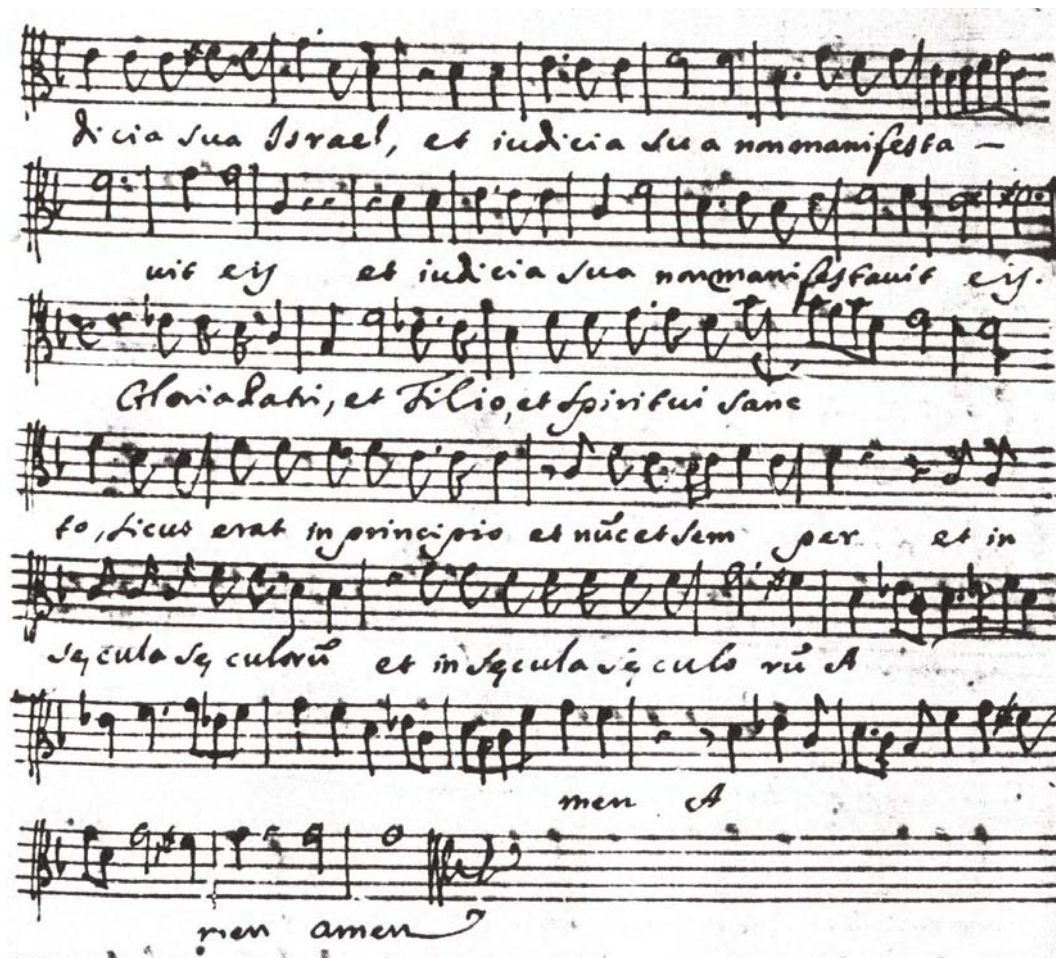 dicia sua Israel, et iudicia sua non manifesta –
uit eis et iudicia sua non manifestauit eis.
Gloria Patri, et Filio, et Spiritui Sanc
to, sicut erat in principio et nũc et sem per et in
sęcula sę culorũ et in sęcula sę culo rũ A
men A
men amen